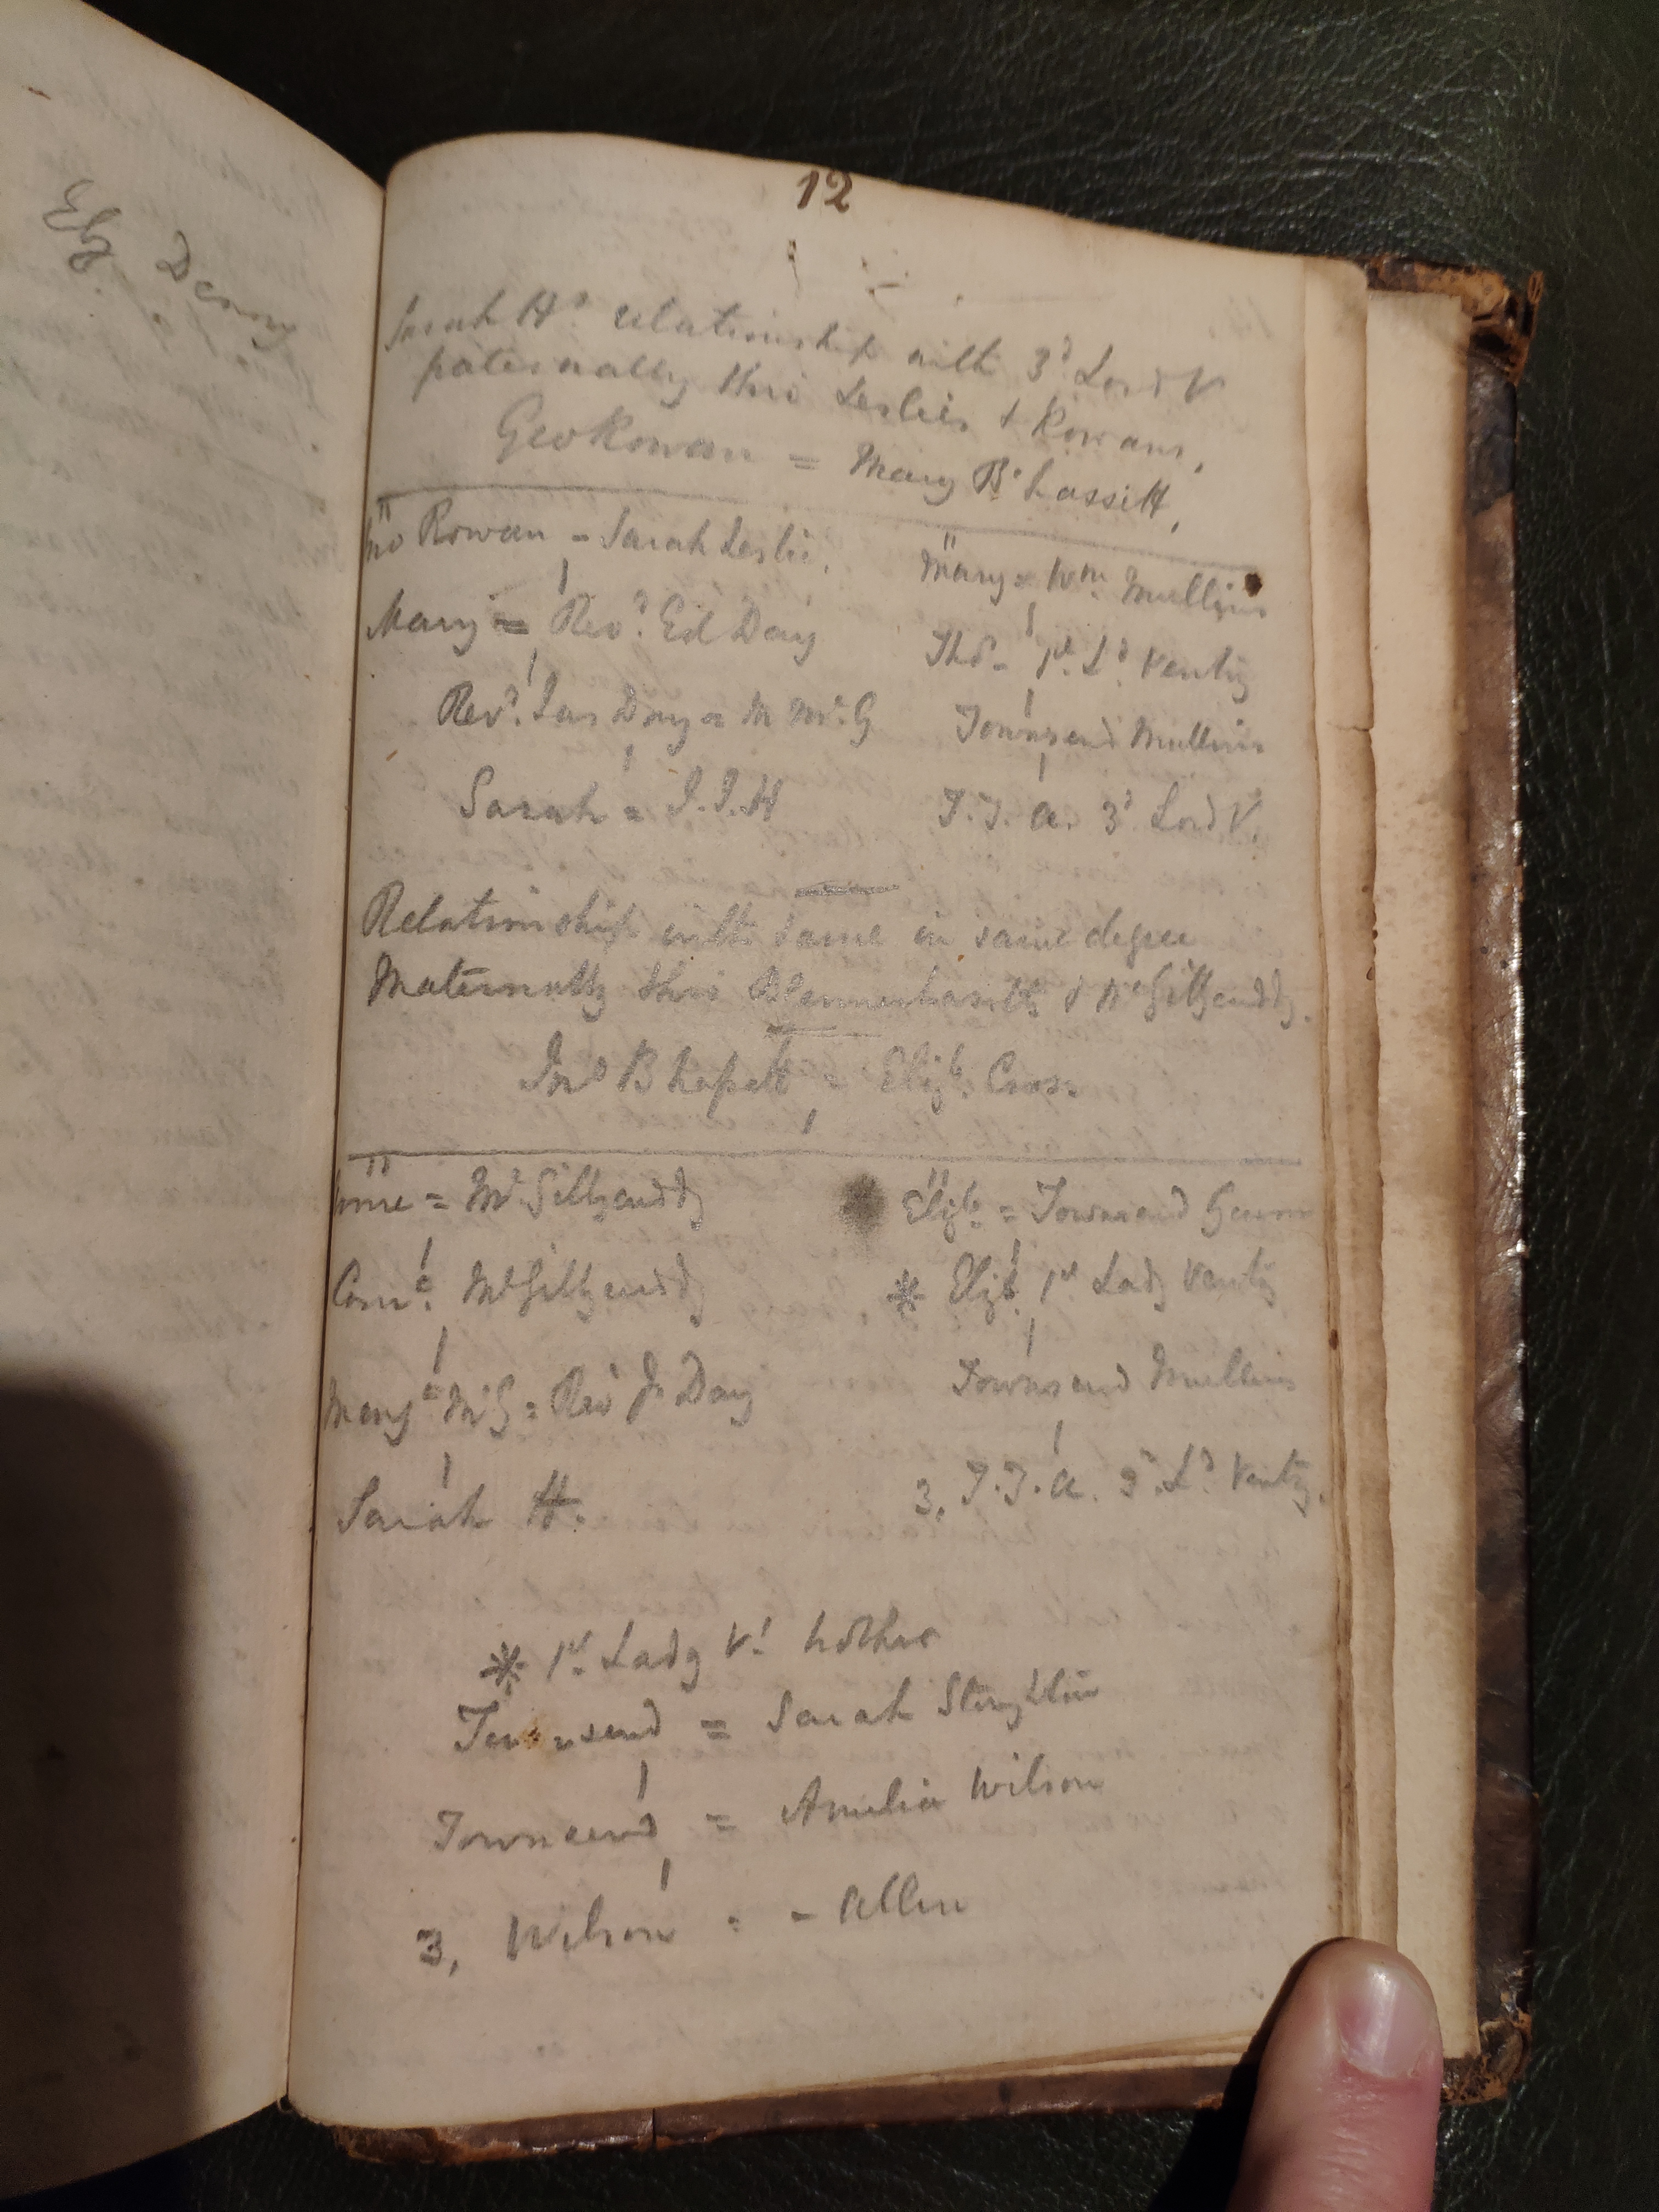 Elz. Denny
12
Sarah Hs relationship with 3d Lord V
paternally thro Leslies & Rowans,
Geo Rowan = Mary B'hassitt,
Jno Rowan = Sarah Leslie, Mary = Wm. Mullins
Mary = Revd. Ed Day Thos. 1st. Ld. Ventry
Revd. Jas Day = M Mc. G Townsend Mullins
Sarah = J.J.H T.T.A. 3d Lord V.
Relationship with same in same degree
Maternally thro Blennerhassitts & McGillycuddy.
Jno B'hassett = Elizb. Cross
= McGillycuddy Elizb. = Townsend Gunn
Corns. McGillycuddy * Elizb. 1st Lady Ventry
Mary McG = Revd J. Day Townsend Mullins
Sarah H. 3, T.T.A. 3d. Ld. Ventry.
* 1st. Lady V's brother
Townsend = Sarah Stoughton
Townsend = Amelia Wilson
3, Wilson = - Allen